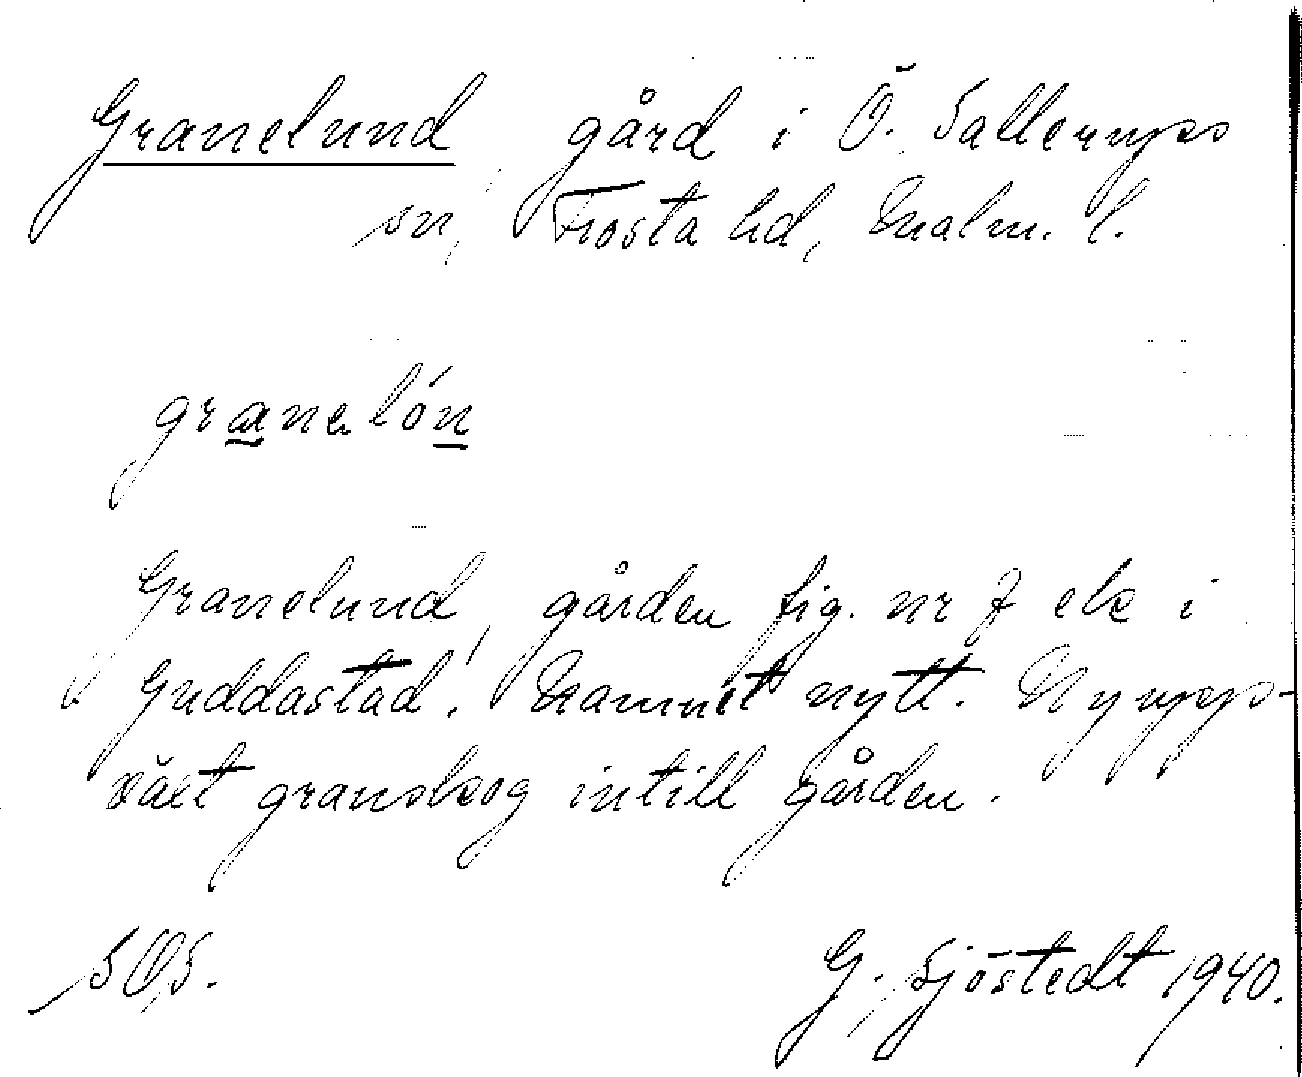 Granelund, gård i Ö. Sallerups
sn, Frosta hd, Malm. l.
granelón
Granelund, gården fig. nr 7 ek i
Guddastad! Namnet nytt. Ny upp-
växt granskog intill gården.
SOS. G. Sjöstedt 1940.